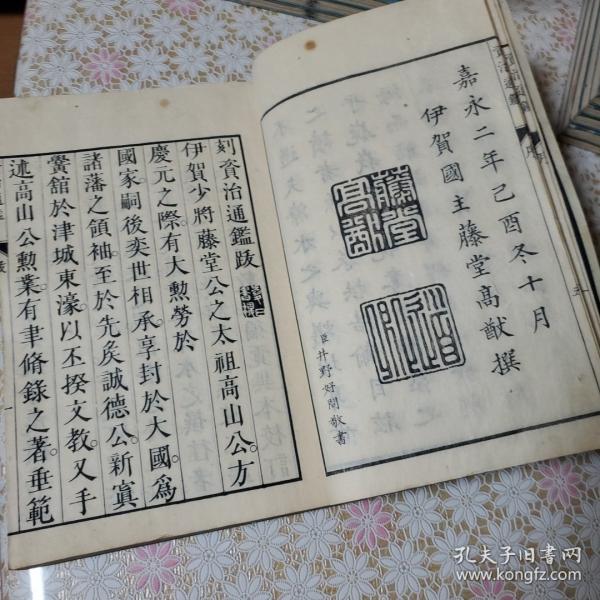 嘉永二年己酉冬十月
伊賀國主藤堂高猷撰
藤堂
高猷
臣井野好問敬書
刻資治通鑑跋
伊賀少將藤堂公之太祖高山公方
慶元之際有大勲勞於
國家嗣後奕世相承享封於大國爲
諸藩之領袖至於先矦誠德公新寘
黌舘於津城東濠以丕揆文教又手
述高山公勲業有聿脩錄之著垂範
孔夫子旧书网
www.kongfz.com